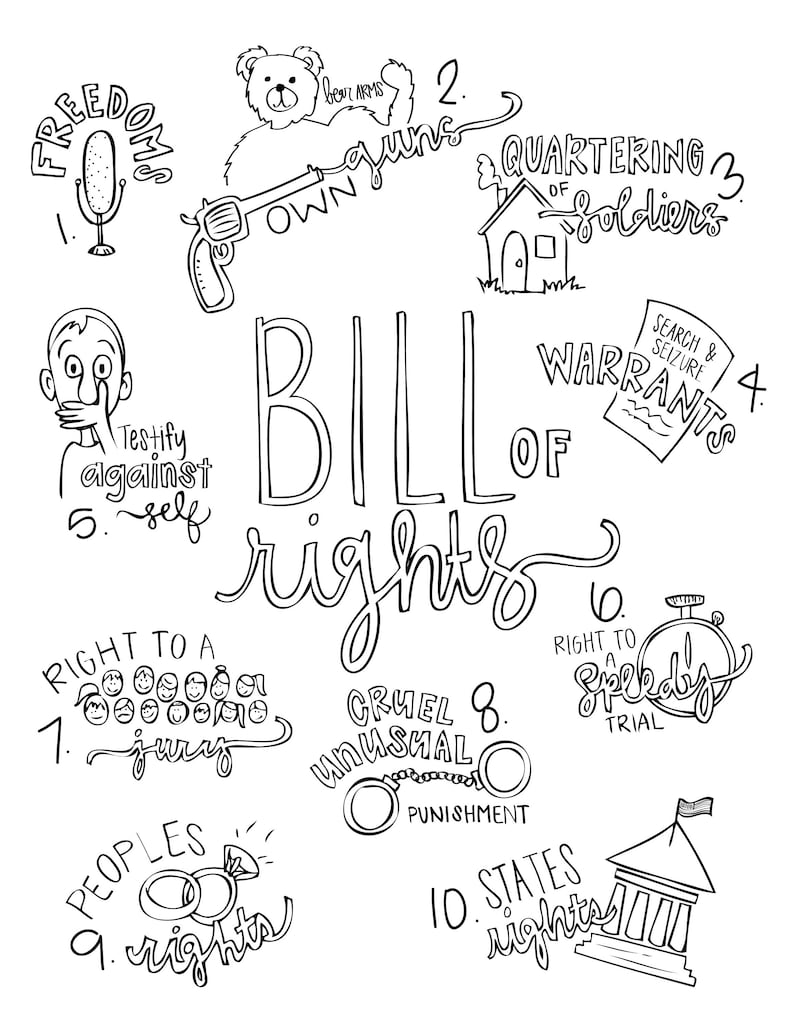 FREEDOMS
1.
bear ARMS
2.
OWN guns
QUARTERING
OF
soldiers
3.
SEARCH &
SEIZURE
WARRANTS
4.
Testify
against
self
5.
BILL OF
rights
6.
RIGHT TO
A
speedy
TRIAL
RIGHT TO A
jury
7.
CRUEL
unUSUAL
8.
PUNISHMENT
PEOPLES
rights
9.
10. STATES
rights